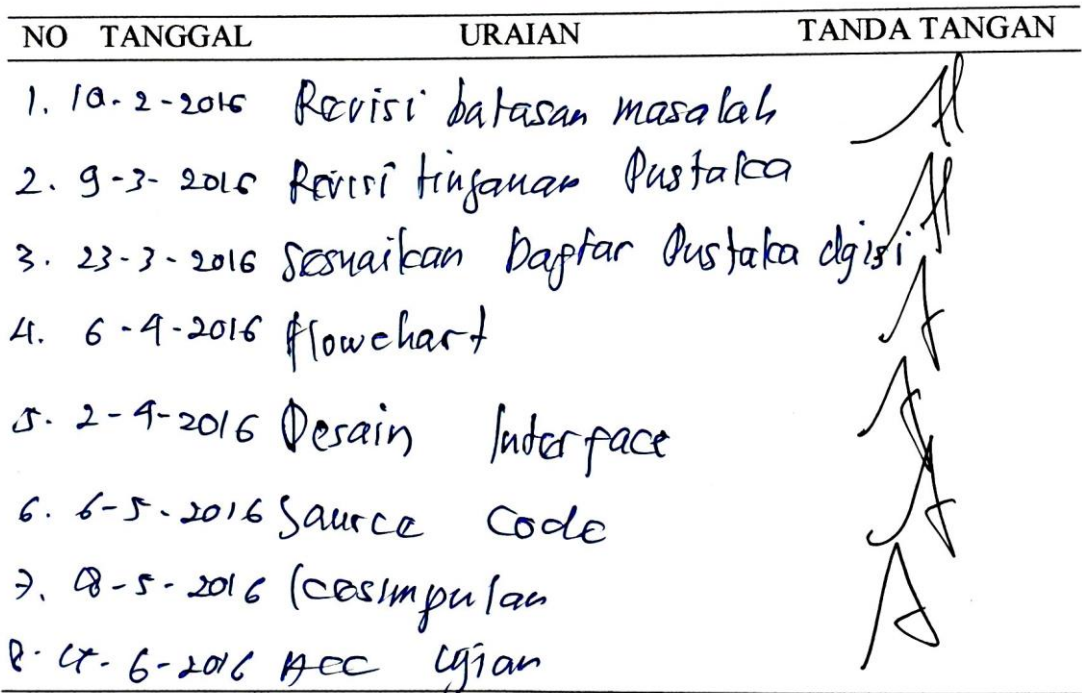 NO TANGGAL URAIAN TANDA TANGAN
1. 10-2-2016 Revisi batasan masalah
2. 9-3-2016 Revisi tinjauan Pustaka
3. 23-3-2016 Sesuaikan Daftar Pustaka dgisi
4. 6-4-2016 flowchart
5. 2-4-2016 Desain Interface
6. 6-5-2016 Saurce Code
7. 18-5-2016 Kesimpulan
8. 6-2016 ACC Ujian